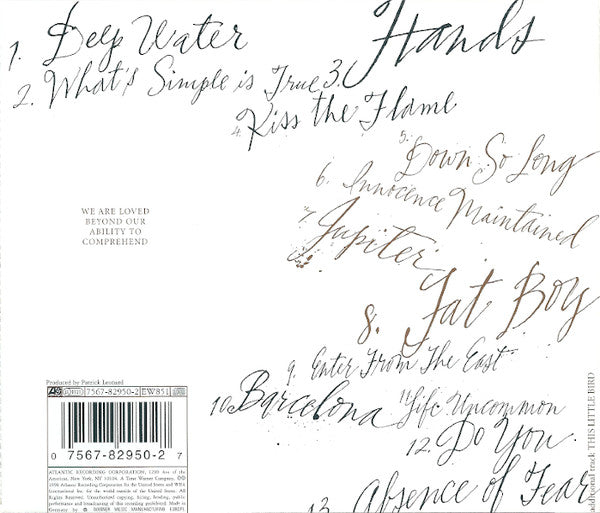 1. Deep Water
2. What's Simple is True
3. Hands
4. Kiss the Flame
5. Down So Long
6. Innocence Maintained
7. Jupiter
8. Fat Boy
9. Enter From The East
10. Barcelona
11. Life Uncommon
12. Do You
13. Absence of Fear
additional track THIS LITTLE BIRD
WE ARE LOVED
BEYOND OUR
ABILITY TO
COMPREHEND
Produced by Patrick Leonard
7567-82950-2 EW851
0 7567-82950-2 7
ATLANTIC RECORDING CORPORATION, 1290 Ave of the
Americas, New York, NY 10104. A Time Warner Company.
1998 Atlantic Recording Corporation for the United States and WEA
International Inc. for the world outside of the United States. All
Rights Reserved. Unauthorized copying, hiring, lending, public
performance and broadcasting of this recording prohibited. Made in
Germany by WARNER MUSIC MANUFACTURING EUROPE